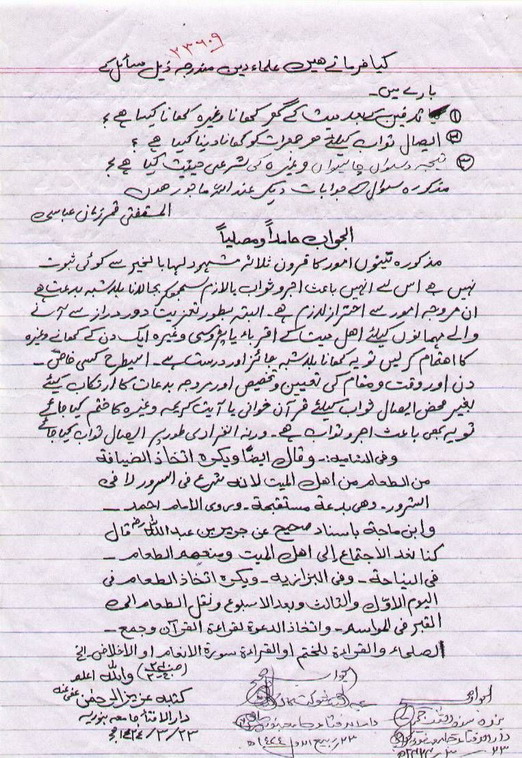 ۲۳۶۰۹
کیا فرماتے ھیں علماء دین مندرجہ ذیل مسائل کے
بارے میں۔
① تدفین کے بعد میت کے گھر کھانا وغیرہ کھانا کیسا ھے؟
② ایصال ثواب کیلئے ھر جمعرات کو کھانا دینا کیسا ھے؟
③ تیجہ دسواں چالیسواں وغیرہ کی شرعی حیثیت کیا ھے؟
مذکورہ سئوال کے جوابات دیکر عند اللہ ماجور ھوں
المستفتی قمر زمان عباسی
الجواب حامداً ومصلیاً
مذکورہ تینوں امور کا قرون ثلاثہ مشہود لہا بالخیر سے کوئی ثبوت
نہیں ہے اس سے انہیں باعث اجر وثواب یا لازم سمجھ کر بجا لانا بلاشبہ بدعت ہے
ان مروجہ امور سے احتراز لازم ہے۔ البتہ بطور تعزیت دور دراز سے آنے
والے مہمانوں کیلئے اھل میت کے اقرباء یا پڑوسی وغیرہ ایک دن کے کھانے وغیرہ
کا اھتمام کرلیں تو یہ کھانا بلاشبہ جائز اور درست ہے۔ اسیطرح کسی خاص
دن اور وقت ومقام کی تعیین وتخصیص اور مروجہ بدعات کا ارتکاب کیئے
بغیر محض ایصال ثواب کیلئے قرآن خوانی یا آیت کریمہ وغیرہ کا ختم کیا جائے
تو یہ بھی باعث اجر وثواب ہے۔ ورنہ انفرادی طور پر ایصال ثواب کیا جائے
وفی الشامیة:۔ وقال ایضًا ویکرہ اتخاذ الضیافة
من الطعام من اھل المیت لانه شرع فی السرور لا فی
الشرور۔ وھی بدعة مستقبحة۔ وروی الامام احمد۔
وابن ماجة باسناد صحیح عن جریر بن عبد اللہ رضؓ قال
کنا نعد الاجتماع إلی اھل المیت وصنعھم الطعام۔
فی النیاحة۔ وفی البزازیة۔ ویکرہ اتخاذ الطعام فی
الیوم الاوّل والثالث وبعد الاسبوع ونقل الطعام الی
القبر فی المواسم۔ واتخاذ الدعوة لقراءة القرآن وجمع۔
الصلحاء والقراءة للختم او لقراءة سورة الانعام او الاخلاص الخ
واللہ اعلم
کتبه عزیز الرحمن عفی عنه
دار الافتاء جامعہ بنوریہ
۲۳/۳/۱۴۲۴ھ
الجواب
۲۳ ربیع الاول ۱۴۲۴ھ
الجواب